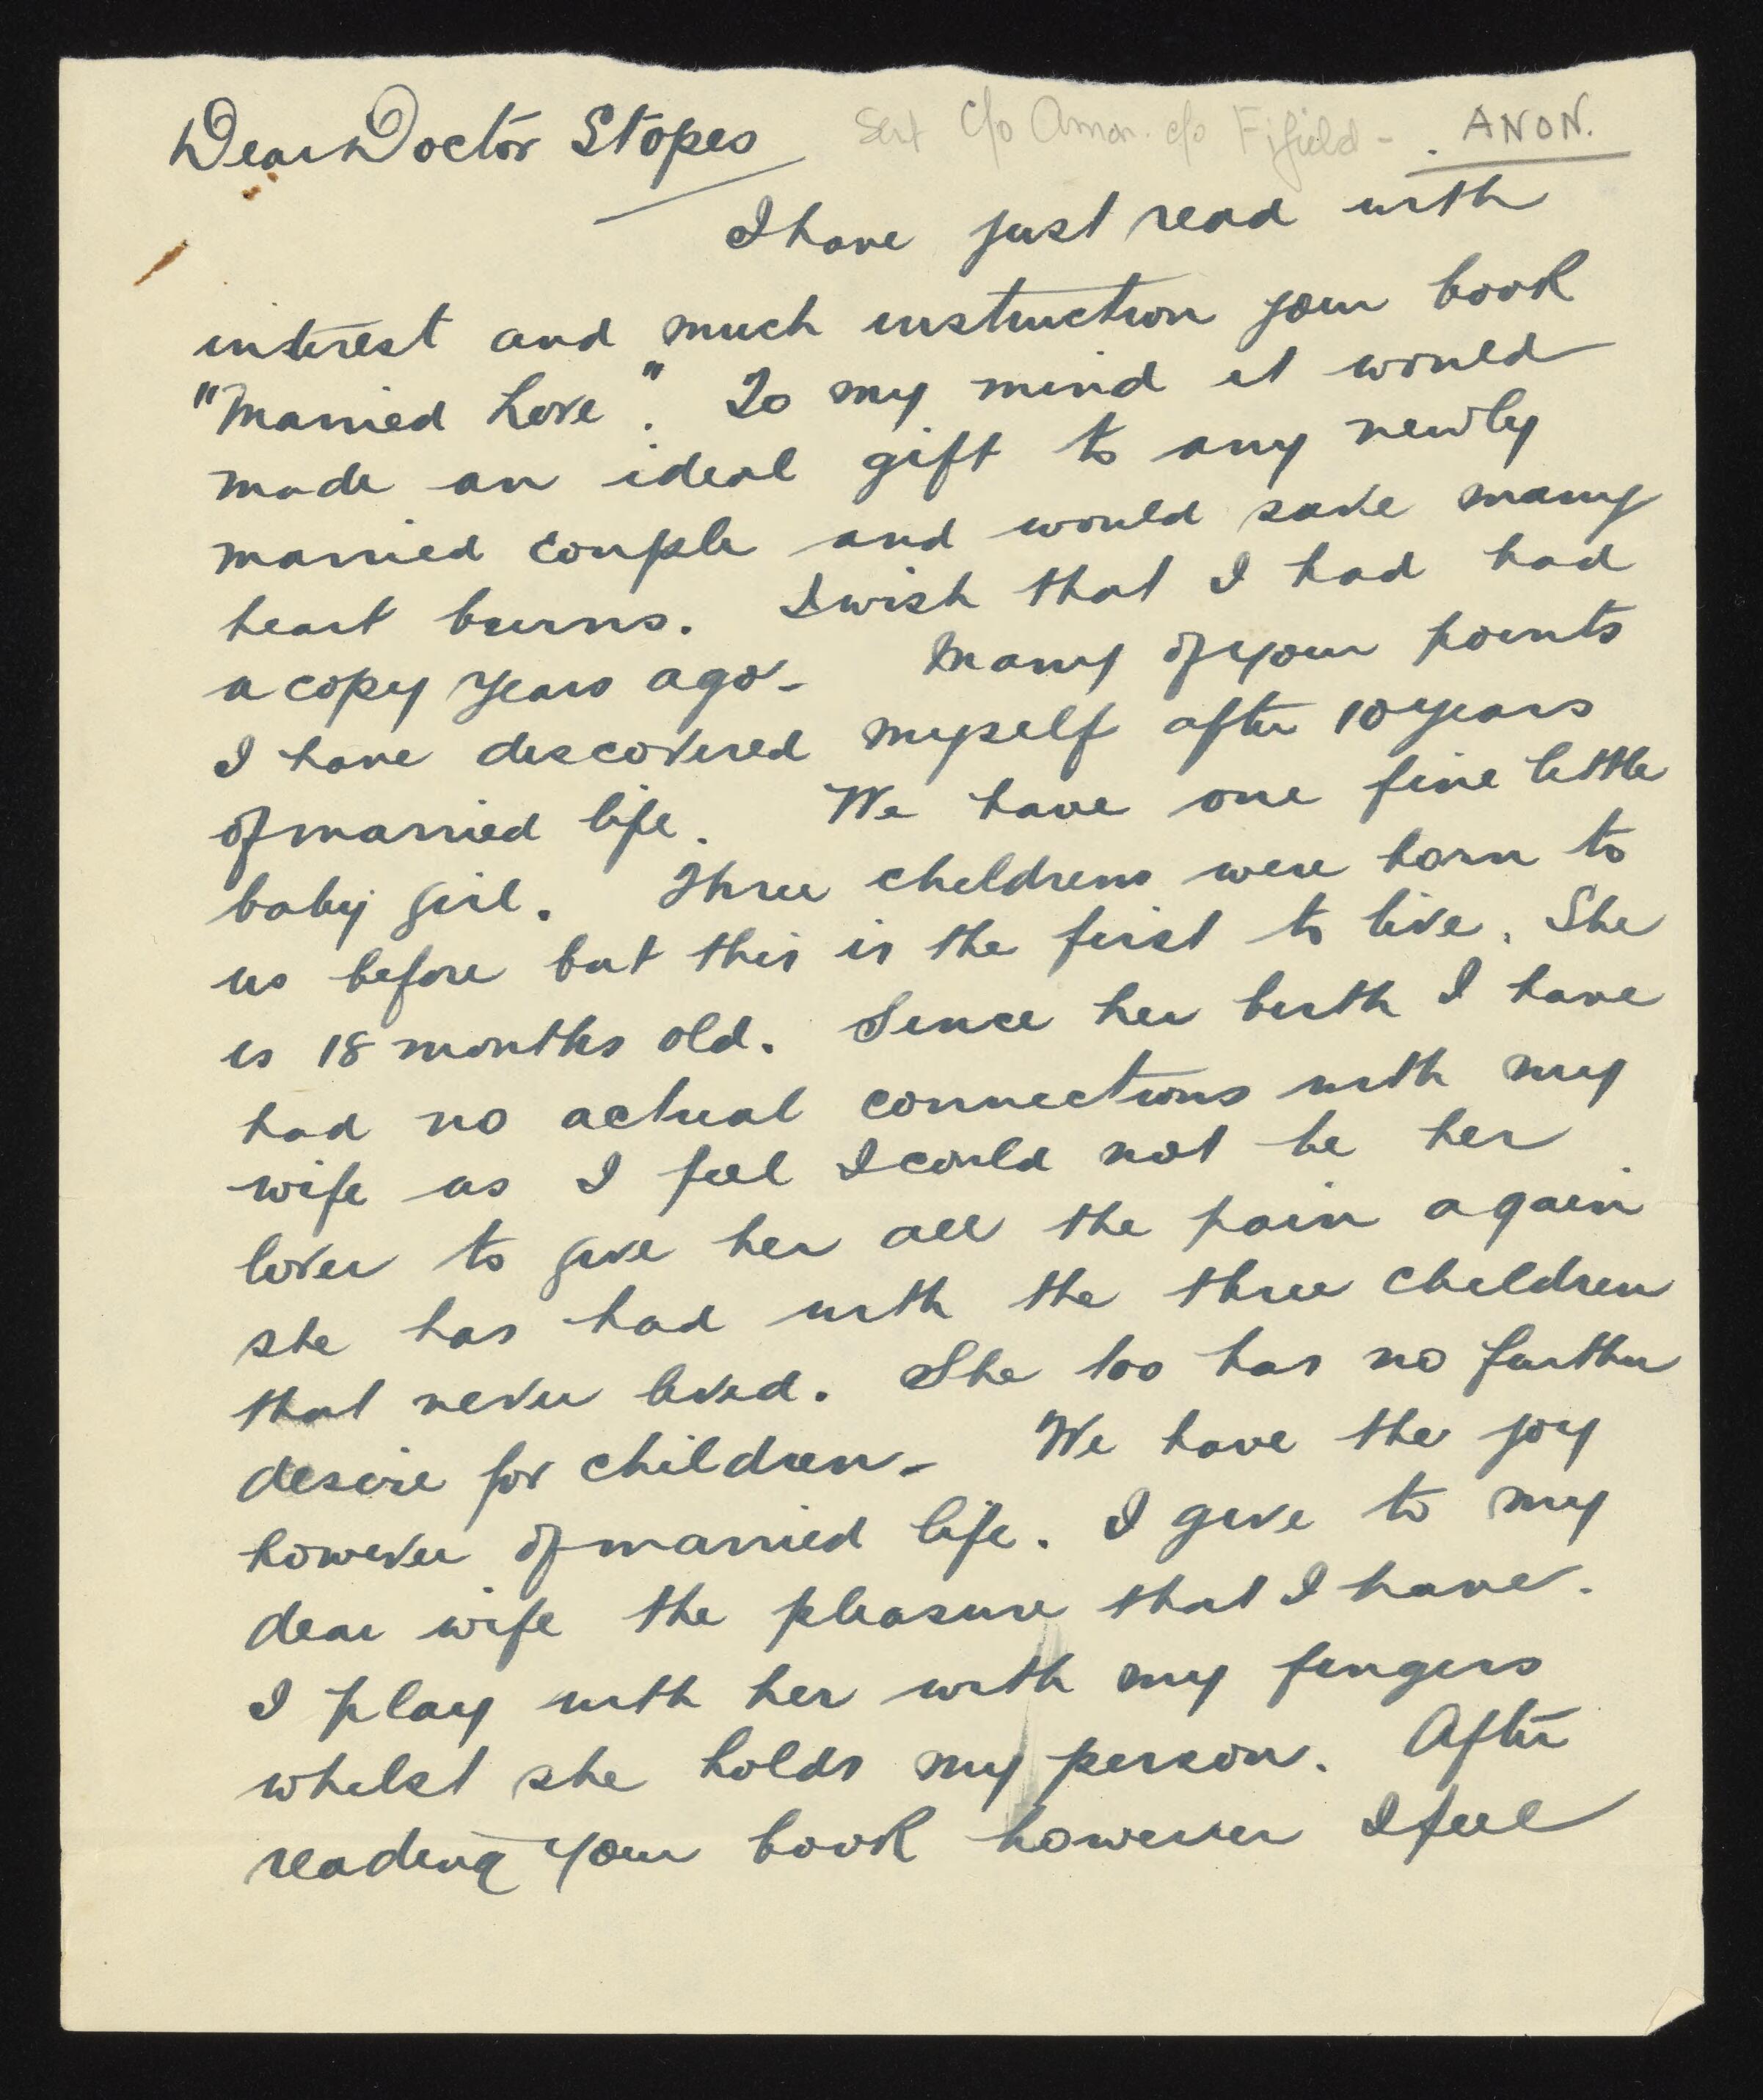 Dear Doctor Stopes
c/o Anon. c/o Fifield - . ANON.
I have just read with
interest and much instruction your book
"Married Love". To my mind it would
made an ideal gift to any newly
married couple and would save many
heart burns. I wish that I had had
a copy years ago - Many of your points
I have discovered myself after 10 years
of married life. We have one fine little
baby girl. Three childrens were born to
us before but this is the first to live. She
is 18 months old. Since her birth I have
had no actual connections with my
wife as I feel I could not be her
lover to give her all the pain again
she has had with the three children
that never lived. She too has no further
desire for children - We have the joy
however of married life. I give to my
dear wife the pleasure that I have.
I play with her with my fingers
whilst she holds my person. After
reading your book however I feel